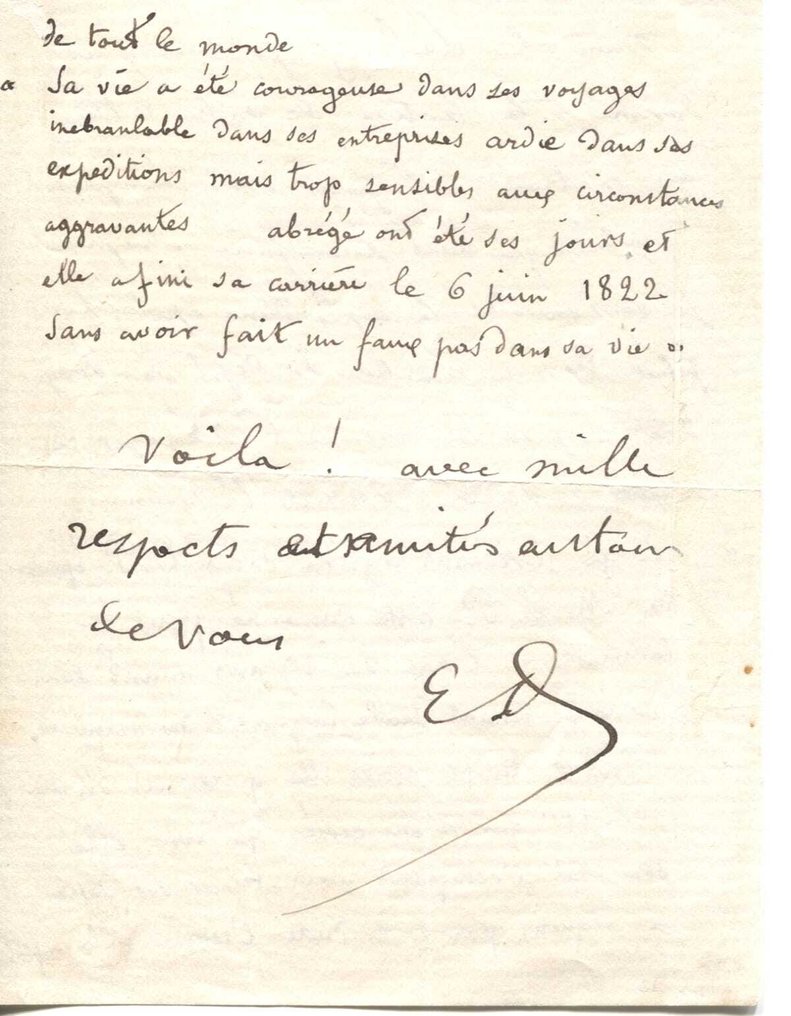 de tout le monde
« Sa vie a été courageuse dans ses voyages
inebranlable dans ses entreprises ardie dans ses
expeditions mais trop sensibles aux circonstances
aggravantes abrégé ont été ses jours et
elle a fini sa carrière le 6 juin 1822
sans avoir fait un faux pas dans sa vie ».
Voila ! avec mille
respects et amitiés autour
de vous